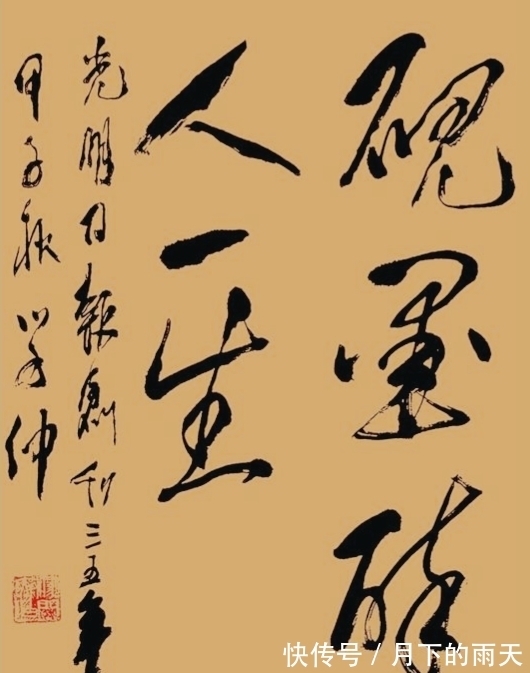 砚墨醉
人一生
光明日報創刊三五年
甲子秋学仲
快传号 / 月下的雨天